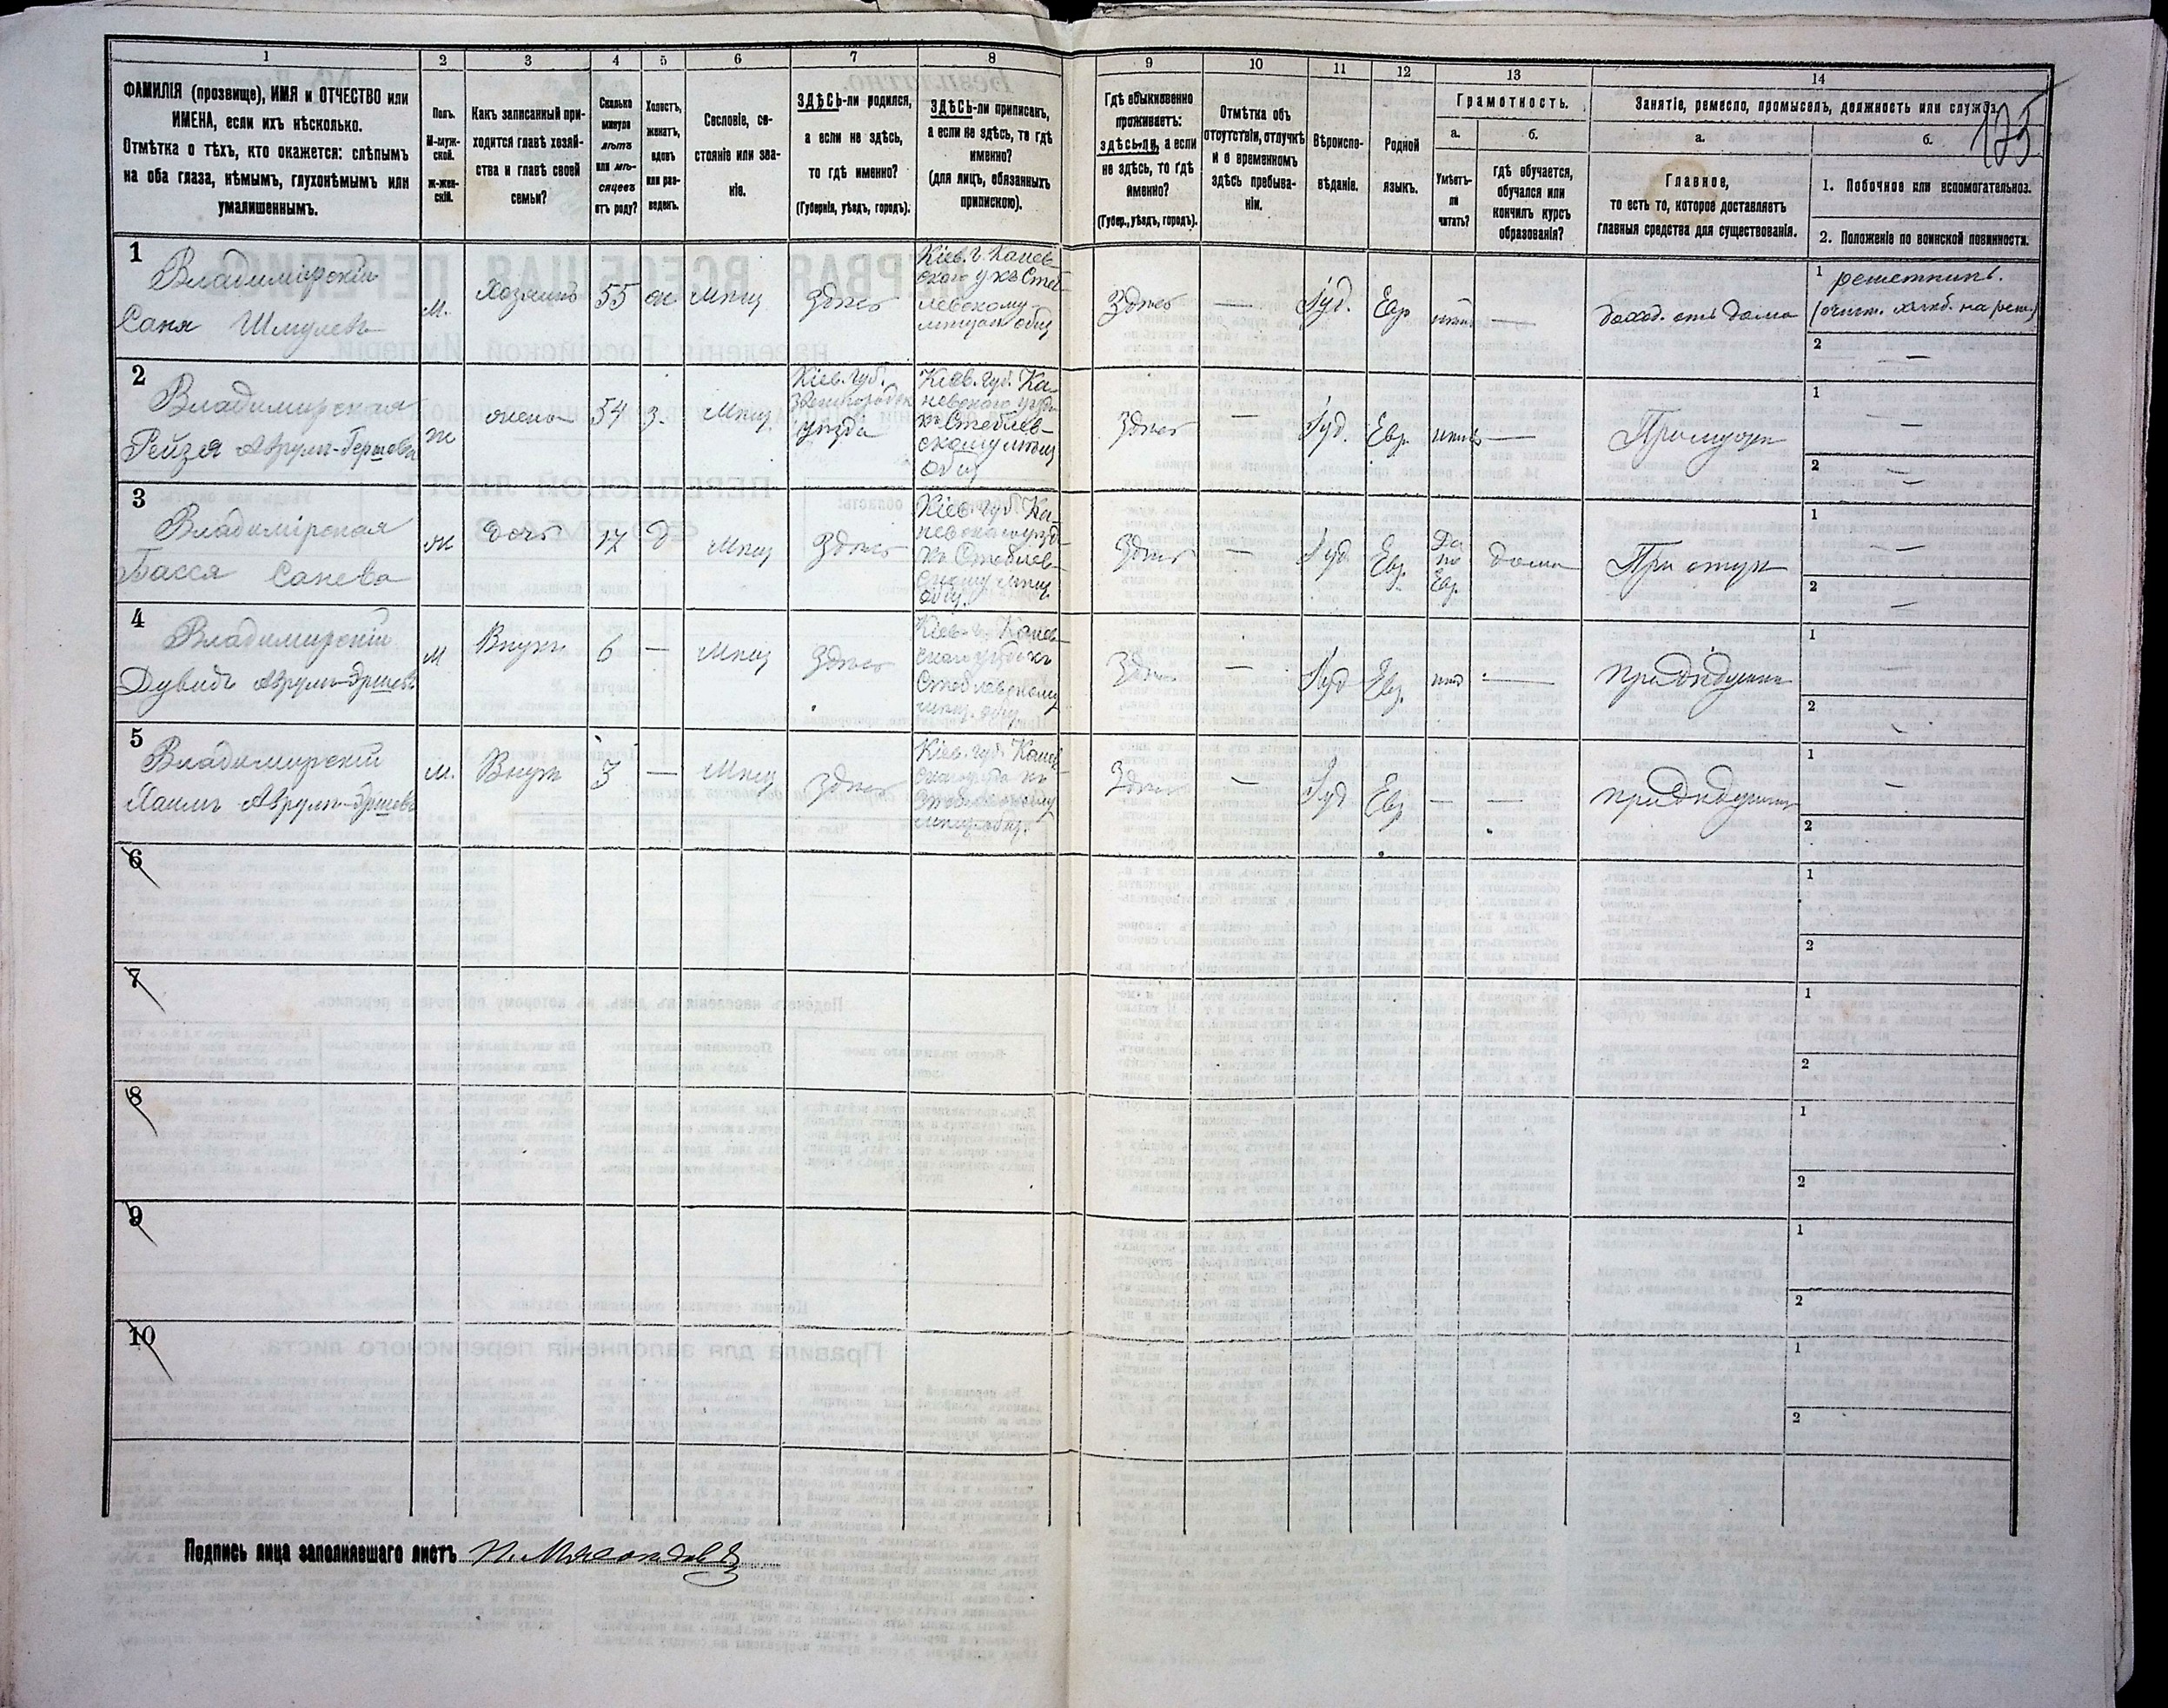 1 2 3 4 5 6 7 8 9 10 11 12 13 14
ФАМИЛІЯ (прозвище), ИМЯ и ОТЧЕСТВО или
ИМЕНА, если ихъ нѣсколько.
Отмѣтка о тѣхъ, кто окажется: слѣпымъ
на оба глаза, нѣмымъ, глухонѣмымъ или
умалишеннымъ.
Полъ.
М-муж-
ской.
Ж-жен-
скій.
Какъ записанный при-
ходится главѣ хозяй-
ства и главѣ своей
семьи?
Сколько
минуло
лѣтъ
или мѣ-
сяцевъ
отъ роду?
Холостъ,
женатъ,
вдовъ
или раз-
веденъ.
Сословіе, со-
стояніе или зва-
ніе.
ЗДѢСЬ-ли родился,
а если не здѣсь,
то гдѣ именно?
(Губернія, уѣздъ, городъ).
ЗДѢСЬ-ли приписанъ,
а если не здѣсь, то гдѣ
именно?
(для лицъ, обязанныхъ
припискою).
Гдѣ обыкновенно
проживаетъ:
здѣсь-ли, а если
не здѣсь, то гдѣ
именно?
(Губер., уѣздъ, городъ).
Отмѣтка объ
отсутствіи, отлучкѣ
и о временномъ
здѣсь пребыва-
ніи.
Вѣроиспо-
вѣданіе.
Родной
языкъ.
Грамотность.
а.
Умѣетъ-
ли
читать?
б.
гдѣ обучается,
обучался или
кончилъ курсъ
образованія?
Занятіе, ремесло, промыселъ, должность или служба.
125
а.
Главное,
то есть то, которое доставляетъ
главныя средства для существованія.
б.
1. Побочное или вспомогательное.
2. Положеніе по воинской повинности.
1
Владимірскій
Саня Шмулевъ
м.
Хозяинъ
55
ж
Мѣщ
Здѣсь
Кіев. г. Канев-
ского у къ Стеб-
левскому
мѣщан общ
Здѣсь
—
Іуд.
Евр
нѣтъ
—
доход. отъ дома
1 решетникъ.
2 —
2
Владимирская
Рейзя Аврумъ-Гершова
ж
жена
54
з.
Мѣщ.
Кіев. губ.
Звенигородск
уѣзда
Кіев. губ. Ка-
невского уѣзда
къ Стеблев-
скому мѣщ
общ
Здѣсь
—
Іуд.
Евр.
нѣтъ
—
При мужѣ
1 —
2 —
3
Владимірская
Басся Санева
ж
дочь
17
д
Мѣщ
Здѣсь
Кіев. губ Ка-
невского уѣзд
къ Стеблев-
скому мѣщ.
общ.
Здѣсь
—
Іуд
Евр.
Да
по
Евр.
дома
При отцѣ
1 —
2 —
4
Владимирскій
Дувидъ Аврумъ-Эршевъ
м
Внукъ
6
—
Мѣщ
Здѣсь
Стеблевскому
мѣщ. общ
Здѣсь
—
Іуд
Евр.
нѣт
—
При дѣдушкѣ
1 —
2
5
Владимирскій
Хаимъ Аврумъ-Эршевъ
м.
Внукъ
3
—
Мѣщ
Здѣсь
Кіев. губ. Канев-
ского уѣзда къ
Стеблевскому
мѣщ. общ.
Здѣсь
—
Іуд
Евр
—
—
При дѣдушкѣ
1 —
2
6
1
2
7
1
2
8
1
2
9
1
2
10
1
2
Подпись лица заполнявшаго листъ